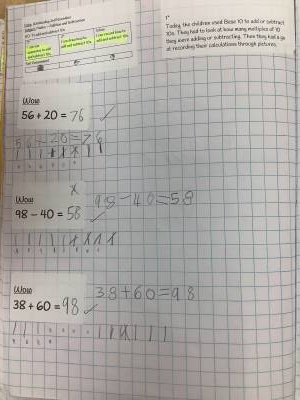 1°
Today, the children used Base 10 to add or subtract
10s. They had to look at how many multiples of 10
they were adding or subtracting. Then they had a go
at recording their calculations through pictures.
Wow
56 + 20 = 76
56+20=76
Wow
98 - 40 = 58
98-40=58
Wow
38 + 60 = 98
38+60=98